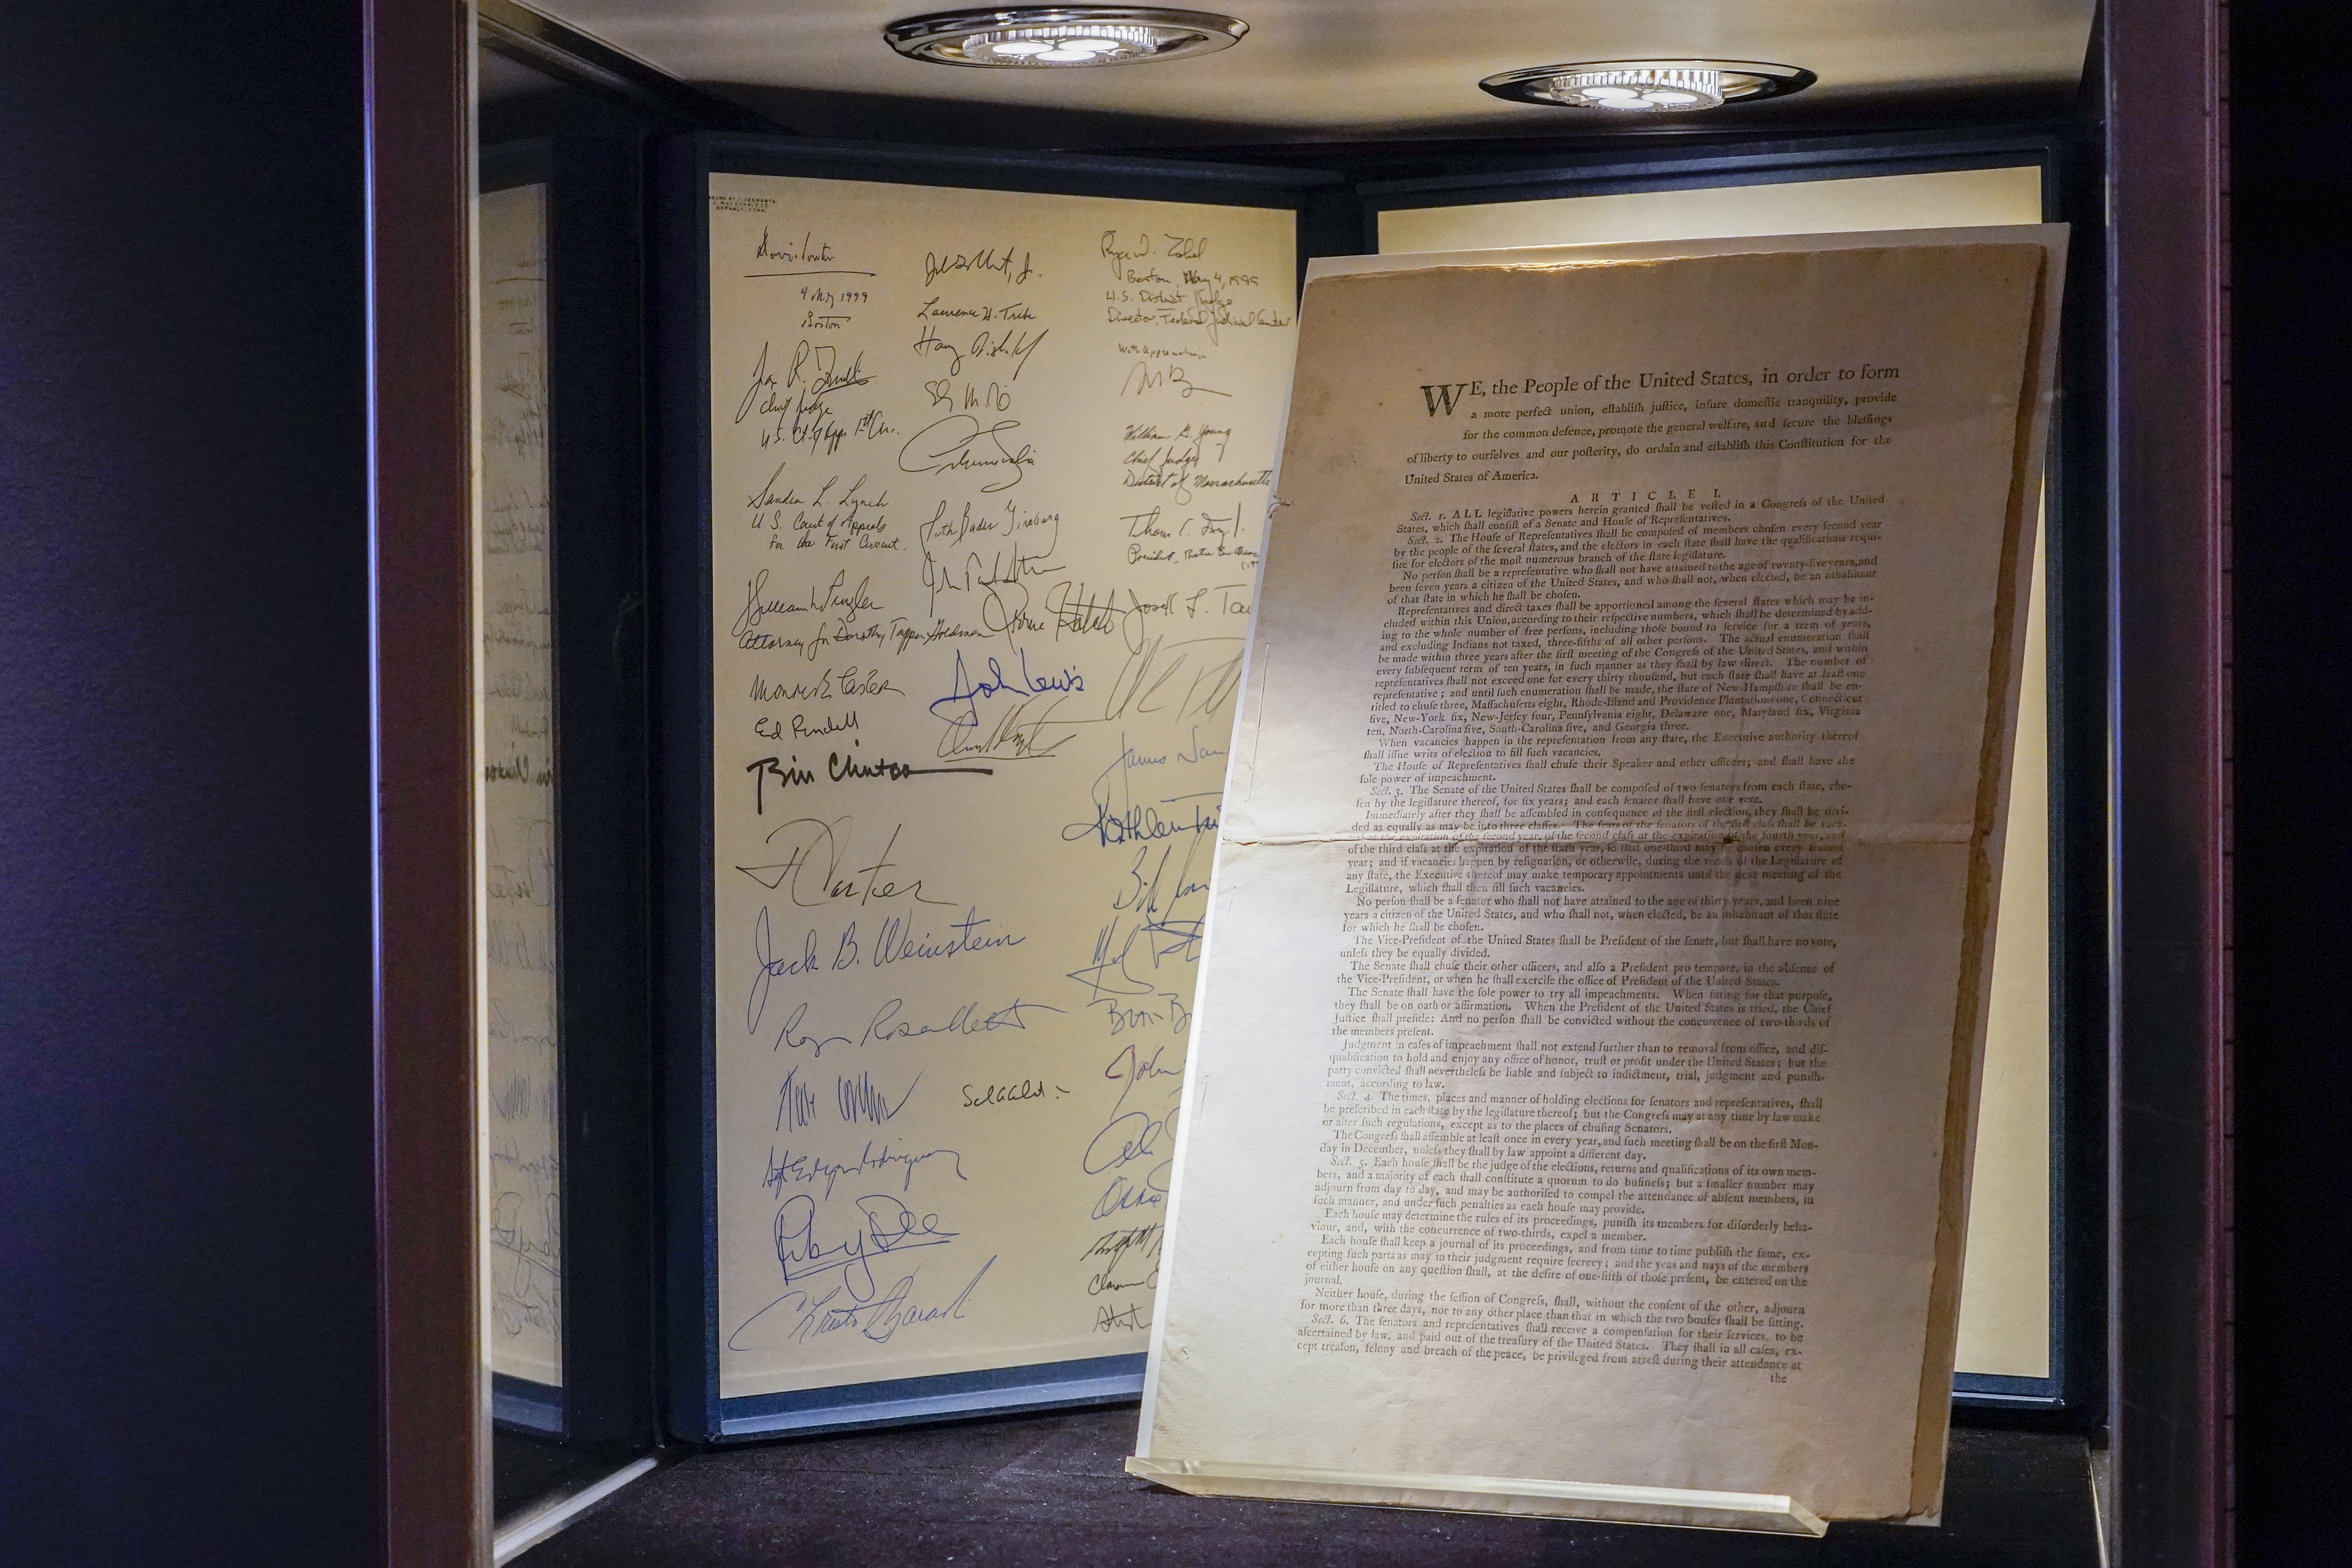 4 May 1999
Boston
Chief Judge
Sandra L. Lynch
U.S. Court of Appeals
for the First Circuit.
Attorney for Dorothy Tapper Goldman
Ed Rendell
Bill Clinton
J Carter
Jack B. Weinstein
Laurence H. Tribe
Ruth Bader Ginsburg
John Lewis
Boston, May 4, 1999
U.S. District Judge
Director, Federal Judicial Center
with appreciation
William G. Young
Chief Judge
District of Massachusetts
President,
James
Kathleen
Bill
John
WE, the People of the United States, in order to form
a more perfect union, eſtabliſh juſtice, inſure domeſtic tranquility, provide
for the common defence, promote the general welfare, and ſecure the bleſſings
of liberty to ourſelves and our poſterity, do ordain and eſtabliſh this Conſtitution for the
United States of America.
ARTICLE I.
Sect. 1. ALL legiſlative powers herein granted ſhall be veſted in a Congreſs of the United
States, which ſhall conſiſt of a Senate and Houſe of Repreſentatives.
Sect. 2. The Houſe of Repreſentatives ſhall be compoſed of members choſen every ſecond year
by the people of the ſeveral ſtates, and the electors in each ſtate ſhall have the qualifications requi-
ſite for electors of the moſt numerous branch of the ſtate legiſlature.
No perſon ſhall be a repreſentative who ſhall not have attained to the age of twenty-five years, and
been ſeven years a citizen of the United States, and who ſhall not, when elected, be an inhabitant
of that ſtate in which he ſhall be choſen.
Repreſentatives and direct taxes ſhall be apportioned among the ſeveral ſtates which may be in-
cluded within this Union, according to their reſpective numbers, which ſhall be determined by add-
ing to the whole number of free perſons, including thoſe bound to ſervice for a term of years,
and excluding Indians not taxed, three-fifths of all other perſons. The actual enumeration ſhall
be made within three years after the firſt meeting of the Congreſs of the United States, and within
every ſubſequent term of ten years, in ſuch manner as they ſhall by law direct. The number of
repreſentatives ſhall not exceed one for every thirty thouſand, but each ſtate ſhall have at leaſt one
repreſentative; and until ſuch enumeration ſhall be made, the ſtate of New-Hampſhire ſhall be en-
titled to chuſe three, Maſſachuſetts eight, Rhode-Iſland and Providence Plantations one, Connecticut
five, New-York ſix, New-Jerſey four, Pennſylvania eight, Delaware one, Maryland ſix, Virginia
ten, North-Carolina five, South-Carolina five, and Georgia three.
When vacancies happen in the repreſentation from any ſtate, the Executive authority thereof
ſhall iſſue writs of election to fill ſuch vacancies.
The Houſe of Repreſentatives ſhall chuſe their Speaker and other officers; and ſhall have the
ſole power of impeachment.
Sect. 3. The Senate of the United States ſhall be compoſed of two ſenators from each ſtate, cho-
ſen by the legiſlature thereof, for ſix years; and each ſenator ſhall have one vote.
Immediately after they ſhall be aſſembled in conſequence of the firſt election, they ſhall be divi-
ded as equally as may be into three claſſes. The ſeats of the ſenators of the firſt claſs ſhall be vaca-
ted at the expiration of the ſecond year, of the ſecond claſs at the expiration of the fourth year, and
of the third claſs at the expiration of the ſixth year, ſo that one-third may be choſen every ſecond
year; and if vacancies happen by reſignation, or otherwiſe, during the receſs of the Legiſlature of
any ſtate, the Executive thereof may make temporary appointments until the next meeting of the
Legiſlature, which ſhall then fill ſuch vacancies.
No perſon ſhall be a ſenator who ſhall not have attained to the age of thirty years, and been nine
years a citizen of the United States, and who ſhall not, when elected, be an inhabitant of that ſtate
for which he ſhall be choſen.
The Vice-Preſident of the United States ſhall be Preſident of the ſenate, but ſhall have no vote,
unleſs they be equally divided.
The Senate ſhall chuſe their other officers, and alſo a Preſident pro tempore, in the abſence of
the Vice-Preſident, or when he ſhall exerciſe the office of Preſident of the United States.
The Senate ſhall have the ſole power to try all impeachments. When ſitting for that purpoſe,
they ſhall be on oath or affirmation. When the Preſident of the United States is tried, the Chief
Juſtice ſhall preſide: And no perſon ſhall be convicted without the concurrence of two-thirds of
the members preſent.
Judgment in caſes of impeachment ſhall not extend further than to removal from office, and diſ-
qualification to hold and enjoy any office of honor, truſt or profit under the United States; but the
party convicted ſhall nevertheleſs be liable and ſubject to indictment, trial, judgment and puniſh-
ment, according to law.
Sect. 4. The times, places and manner of holding elections for ſenators and repreſentatives, ſhall
be preſcribed in each ſtate by the legiſlature thereof; but the Congreſs may at any time by law make
or alter ſuch regulations, except as to the places of chuſing Senators.
The Congreſs ſhall aſſemble at leaſt once in every year, and ſuch meeting ſhall be on the firſt Mon-
day in December, unleſs they ſhall by law appoint a different day.
Sect. 5. Each houſe ſhall be the judge of the elections, returns and qualifications of its own mem-
bers, and a majority of each ſhall conſtitute a quorum to do buſineſs; but a ſmaller number may
adjourn from day to day, and may be authoriſed to compel the attendance of abſent members, in
ſuch manner, and under ſuch penalties as each houſe may provide.
Each houſe may determine the rules of its proceedings, puniſh its members for diſorderly beha-
viour, and, with the concurrence of two-thirds, expel a member.
Each houſe ſhall keep a journal of its proceedings, and from time to time publiſh the ſame, ex-
cepting ſuch parts as may in their judgment require ſecrecy; and the yeas and nays of the members
of either houſe on any queſtion ſhall, at the deſire of one-fifth of thoſe preſent, be entered on the
journal.
Neither houſe, during the ſeſſion of Congreſs, ſhall, without the conſent of the other, adjourn
for more than three days, nor to any other place than that in which the two houſes ſhall be ſitting.
Sect. 6. The ſenators and repreſentatives ſhall receive a compenſation for their ſervices, to be
aſcertained by law, and paid out of the treaſury of the United States. They ſhall in all caſes, ex-
cept treaſon, felony and breach of the peace, be privileged from arreſt during their attendance at
the